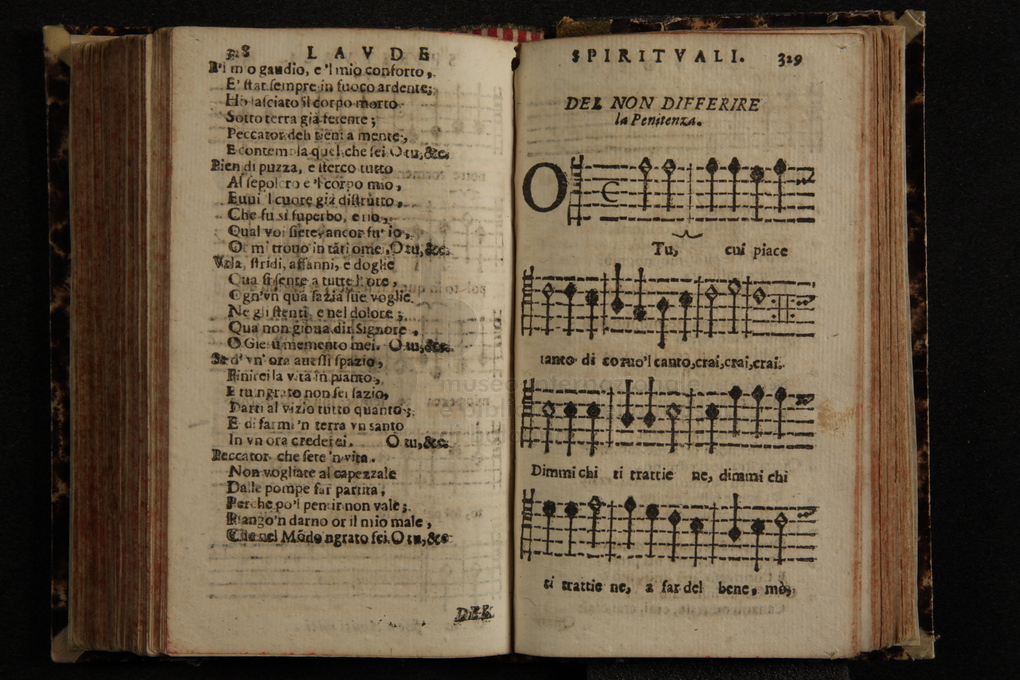 328 LAVDE
E'l mio gaudio, e 'l mio conforto,
E' star sempre in fuoco ardente;
Ho lasciato il corpo morto
Sotto terra già fetente;
Peccator deh tieni a mente,
E contempla quel che sei. O tu, &c.
Pien di puzza, e sterco tutto
Al sepolcro e 'l corpo mio,
Eui 'l cuore già distrutto,
Che fu sì superbo, e rio,
Qual voi siete, ancor fu' io,
Or mi trouo in tãti omei. O tu, &c.
Vrla, stridi, affanni, e doglie
Qua si sente a tutte l'ore,
Ogn'vn qua sazia sue voglie
Ne gli stenti, e nel dolore;
Qua non gioua dir Signore,
O Giesù memento mei. O tu, &c.
Se d'vn' ora auessi spazio,
Finirei la vita in pianto,
E tu ngrato non sei sazio,
Darti al vizio tutto quanto;
E di farmi 'n terra vn santo
In vn ora crederei. O tu, &c.
Peccator che sete 'n vita
Non vogliate al capezzale
Dalle pompe far partita,
Perche po'l pentir non vale;
Piango 'n darno or il mio male,
Che nel Mõdo ngrato sei. O tu, &c.
DEL
SPIRITVALI. 329
DEL NON DIFFERIRE
la Penitenza.
O
Tu, cui piace
tanto di coruo'l canto, crai, crai, crai.
Dimmi chi ti trattie ne, dimmi chi
ti trattie ne, a far del bene, mò,
museo internazionale
e biblioteca